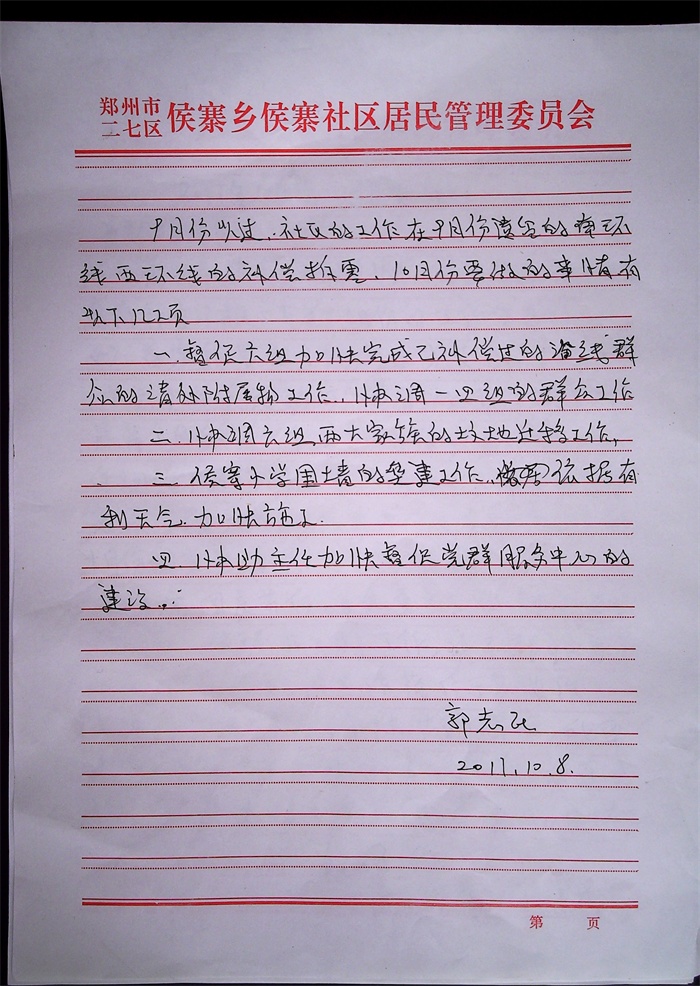 郑州市
二七区 侯寨乡侯寨社区居民管理委员会
9月份以过,社区的工作在9月份遗留的南环
线西环线的补偿拆迁、10月份要做的事情有
以下几项
一.督促六组加快完成已补偿过的沿线群
众的清处附属物工作,协调一四组的群众工作
二.协调六组两大家族的坟地迁移工作,
三.侯寨小学围墙的垒建工作,依据有
利天气.加快施工.
四.协助主任加快督促党群服务中心的
建设..:
郭志民
2017.10.8.
第 页